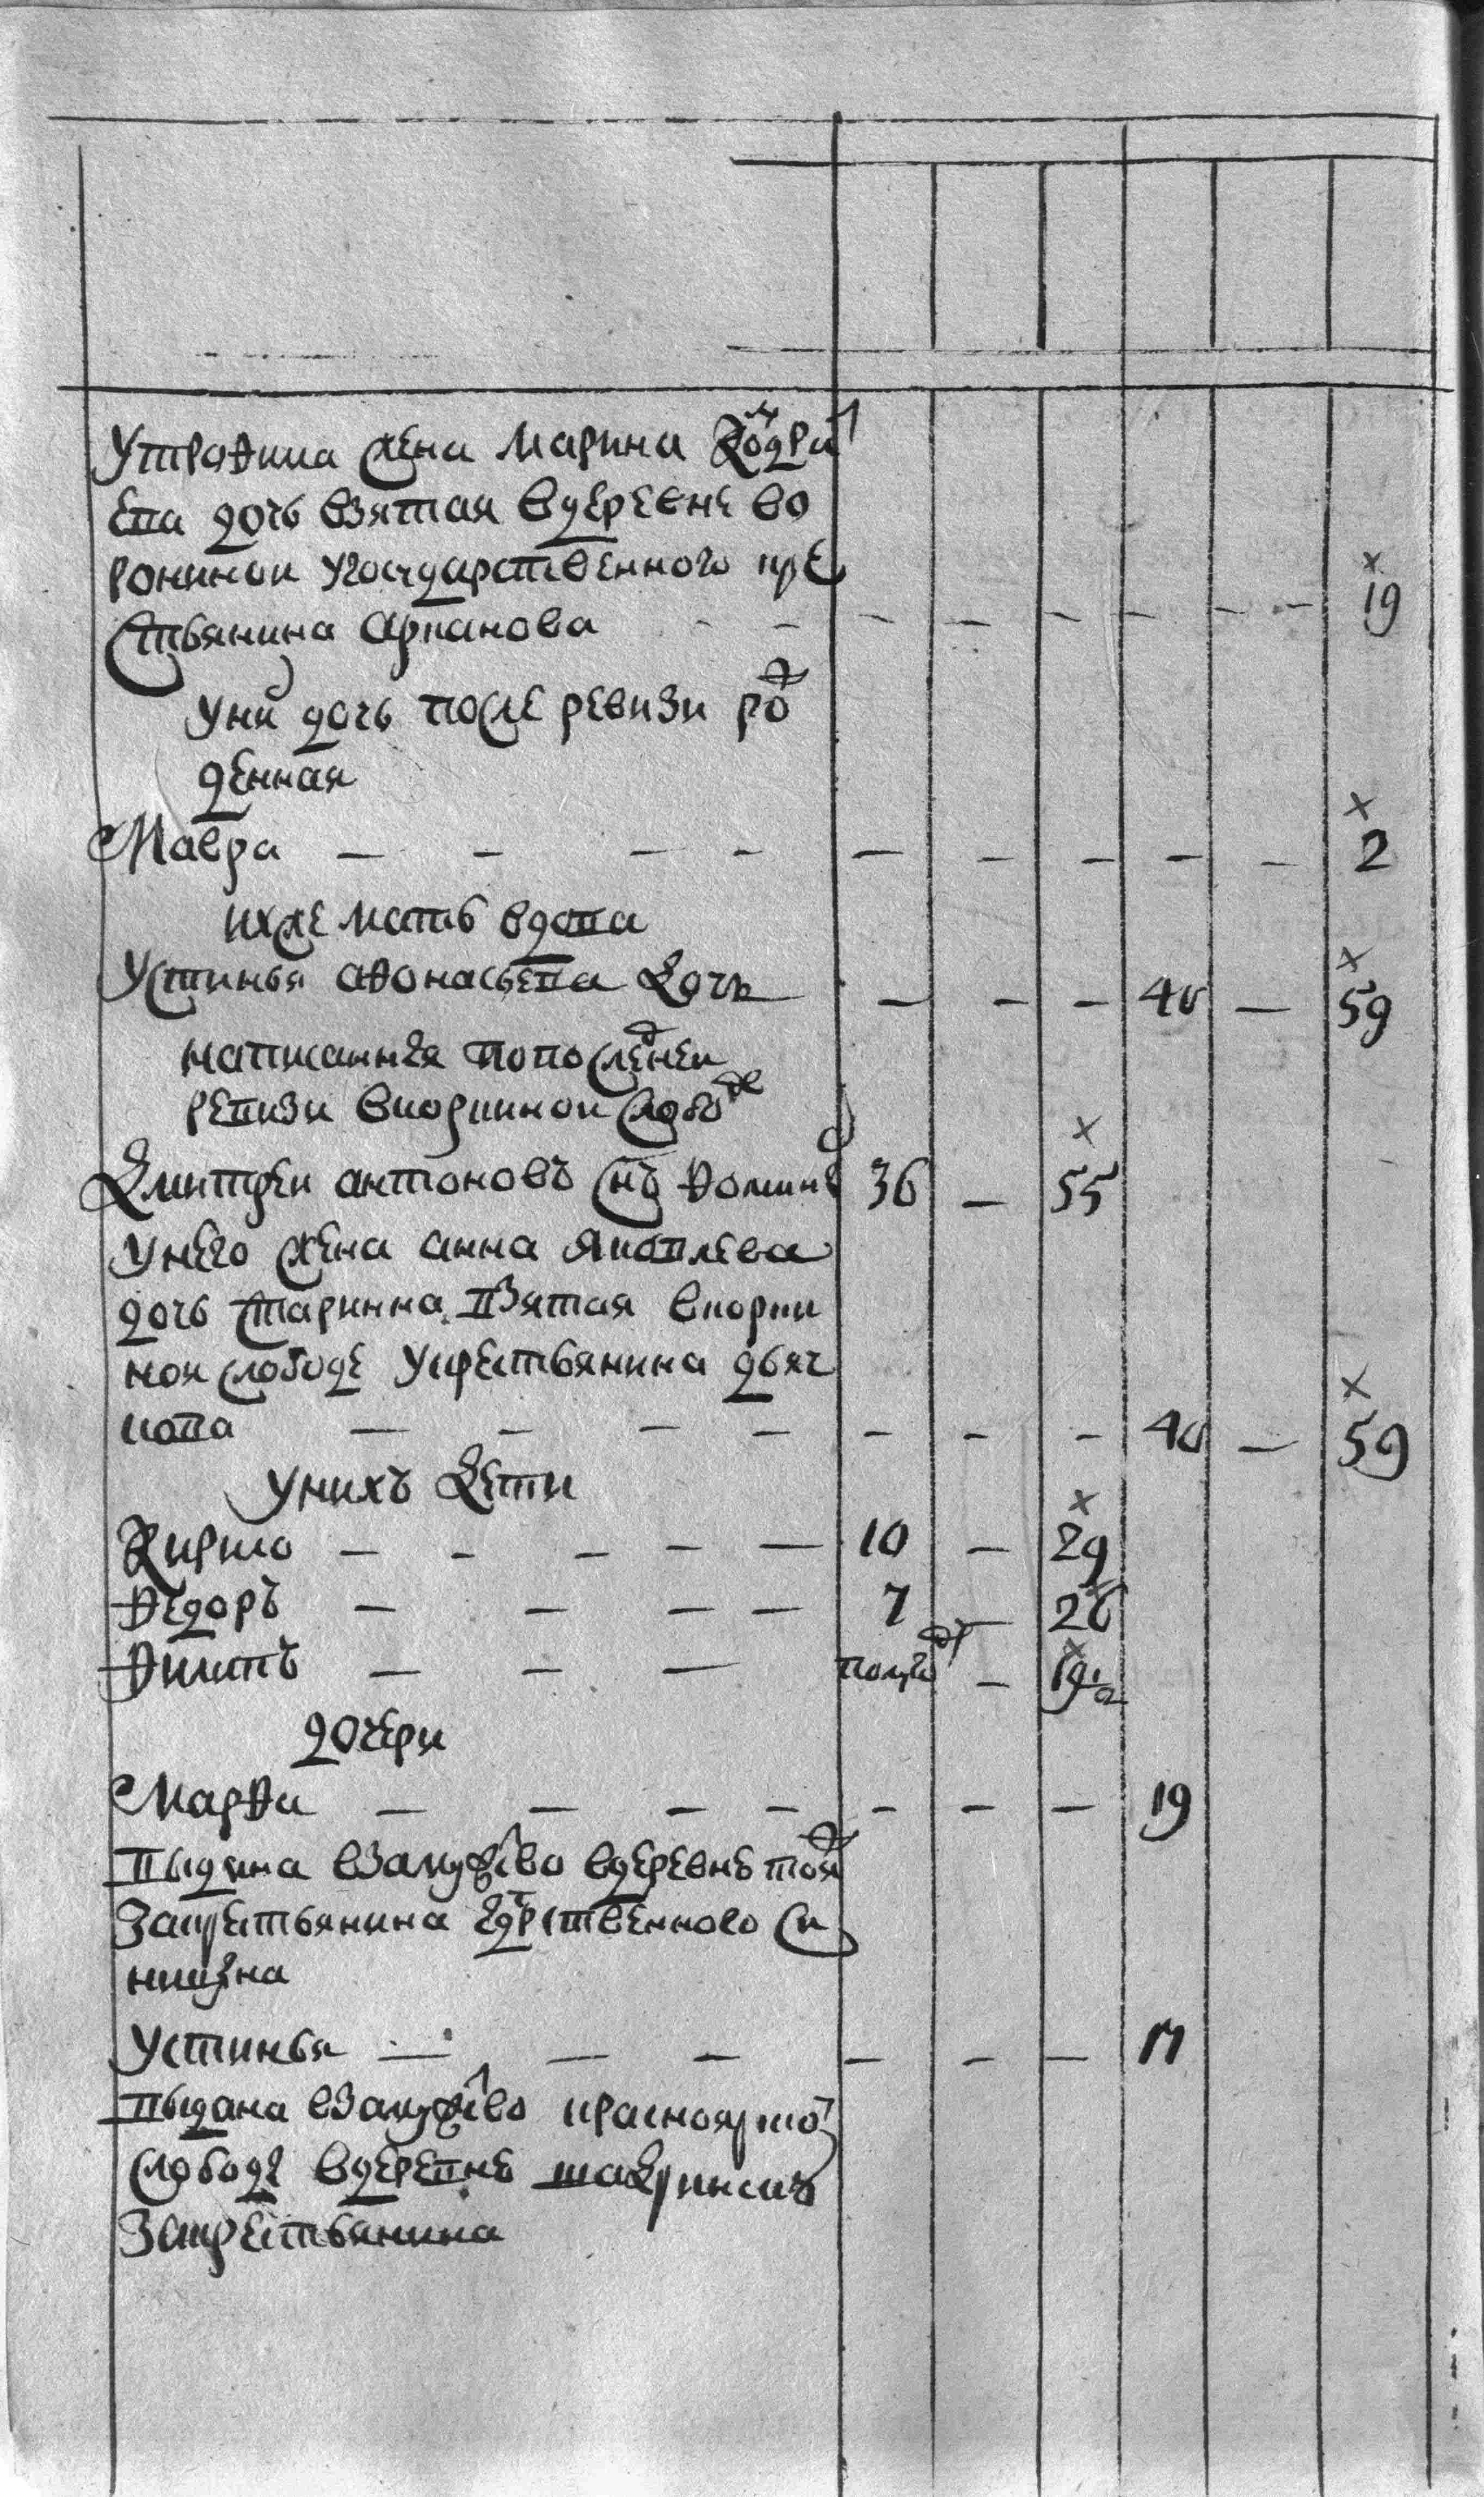 Утрофима жена марина кодра
ева дочь взятая вдеревне во
рониной угосударственного кре
стьянина арканова - - - - - - - - 19
уни дочь после ревизи рож
денная
Мавра - - - - - - - - - 2
ихже мать вдова
Устинья афонасьева дочь - - - 40 - 59
написанныя попоследней
ревизи вкоркиной слободе
Дмитрей антоновъ снъ фоминъ 36 - 55
унего жена анна яковлева
дочь старинна взятая вкорки
ной слободе укрестьянина дьяч
кова - - - - - - - 40 - 59
унихъ дети
Кирило - - - - - 10 - 29
Федоръ - - - - 7 - 26
Филипъ - - - полугоду - 19 1/2
дочери
Марфа - - - - - - - 19
выдана взамужство вдеревне
закрестьянина гдрственного си
ницына
Устинья - - - - - - 17
выдана взамужство красноярской
слободе вдеревне
закрестьянина